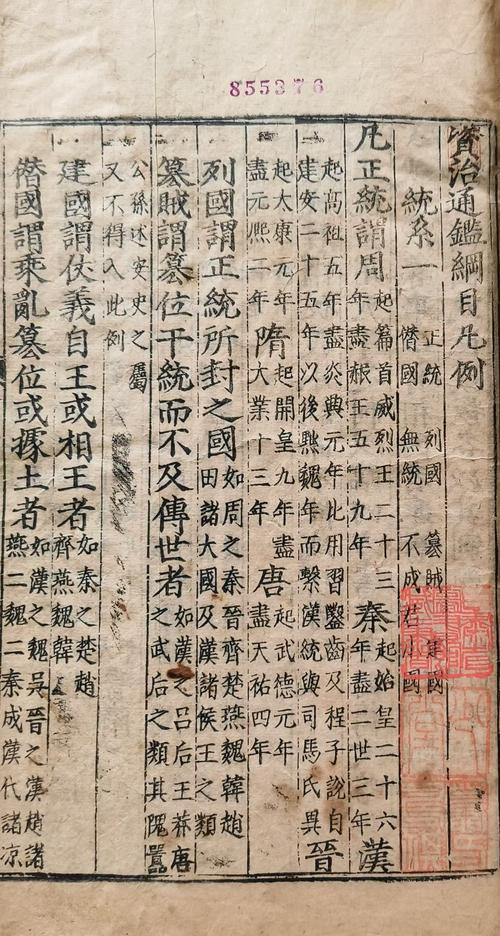 855376
資治通鑑綱目凡例
統系一 正統 列國 篡賊 建國 僭國 無統 不成君小國
凡正統謂周 起篇首威烈王二十三年盡赧王五十九年 秦 起始皇二十六年盡二世三年 漢
起高祖五年盡炎興元年比用習鑿齒及程子說自建安二十五年以後黜魏年而繫漢統與司馬氏異 晉
起太康元年盡元熙二年 隋 起開皇九年盡大業十三年 唐 起武德元年盡天祐四年
列國謂正統所封之國 如周之秦晉齊楚燕魏韓趙田諸大國及漢諸侯王之類
篡賊謂篡位干統而不及傳世者 如漢之呂后王莽唐之武后之類其隗囂
公孫述安史之屬又不得入此例
建國謂仗義自王或相王者 如秦之楚趙齊燕魏韓
僭國謂乘亂篡位或據土者 如漢之魏吳晉之漢趙諸燕二魏二秦成漢代諸凉